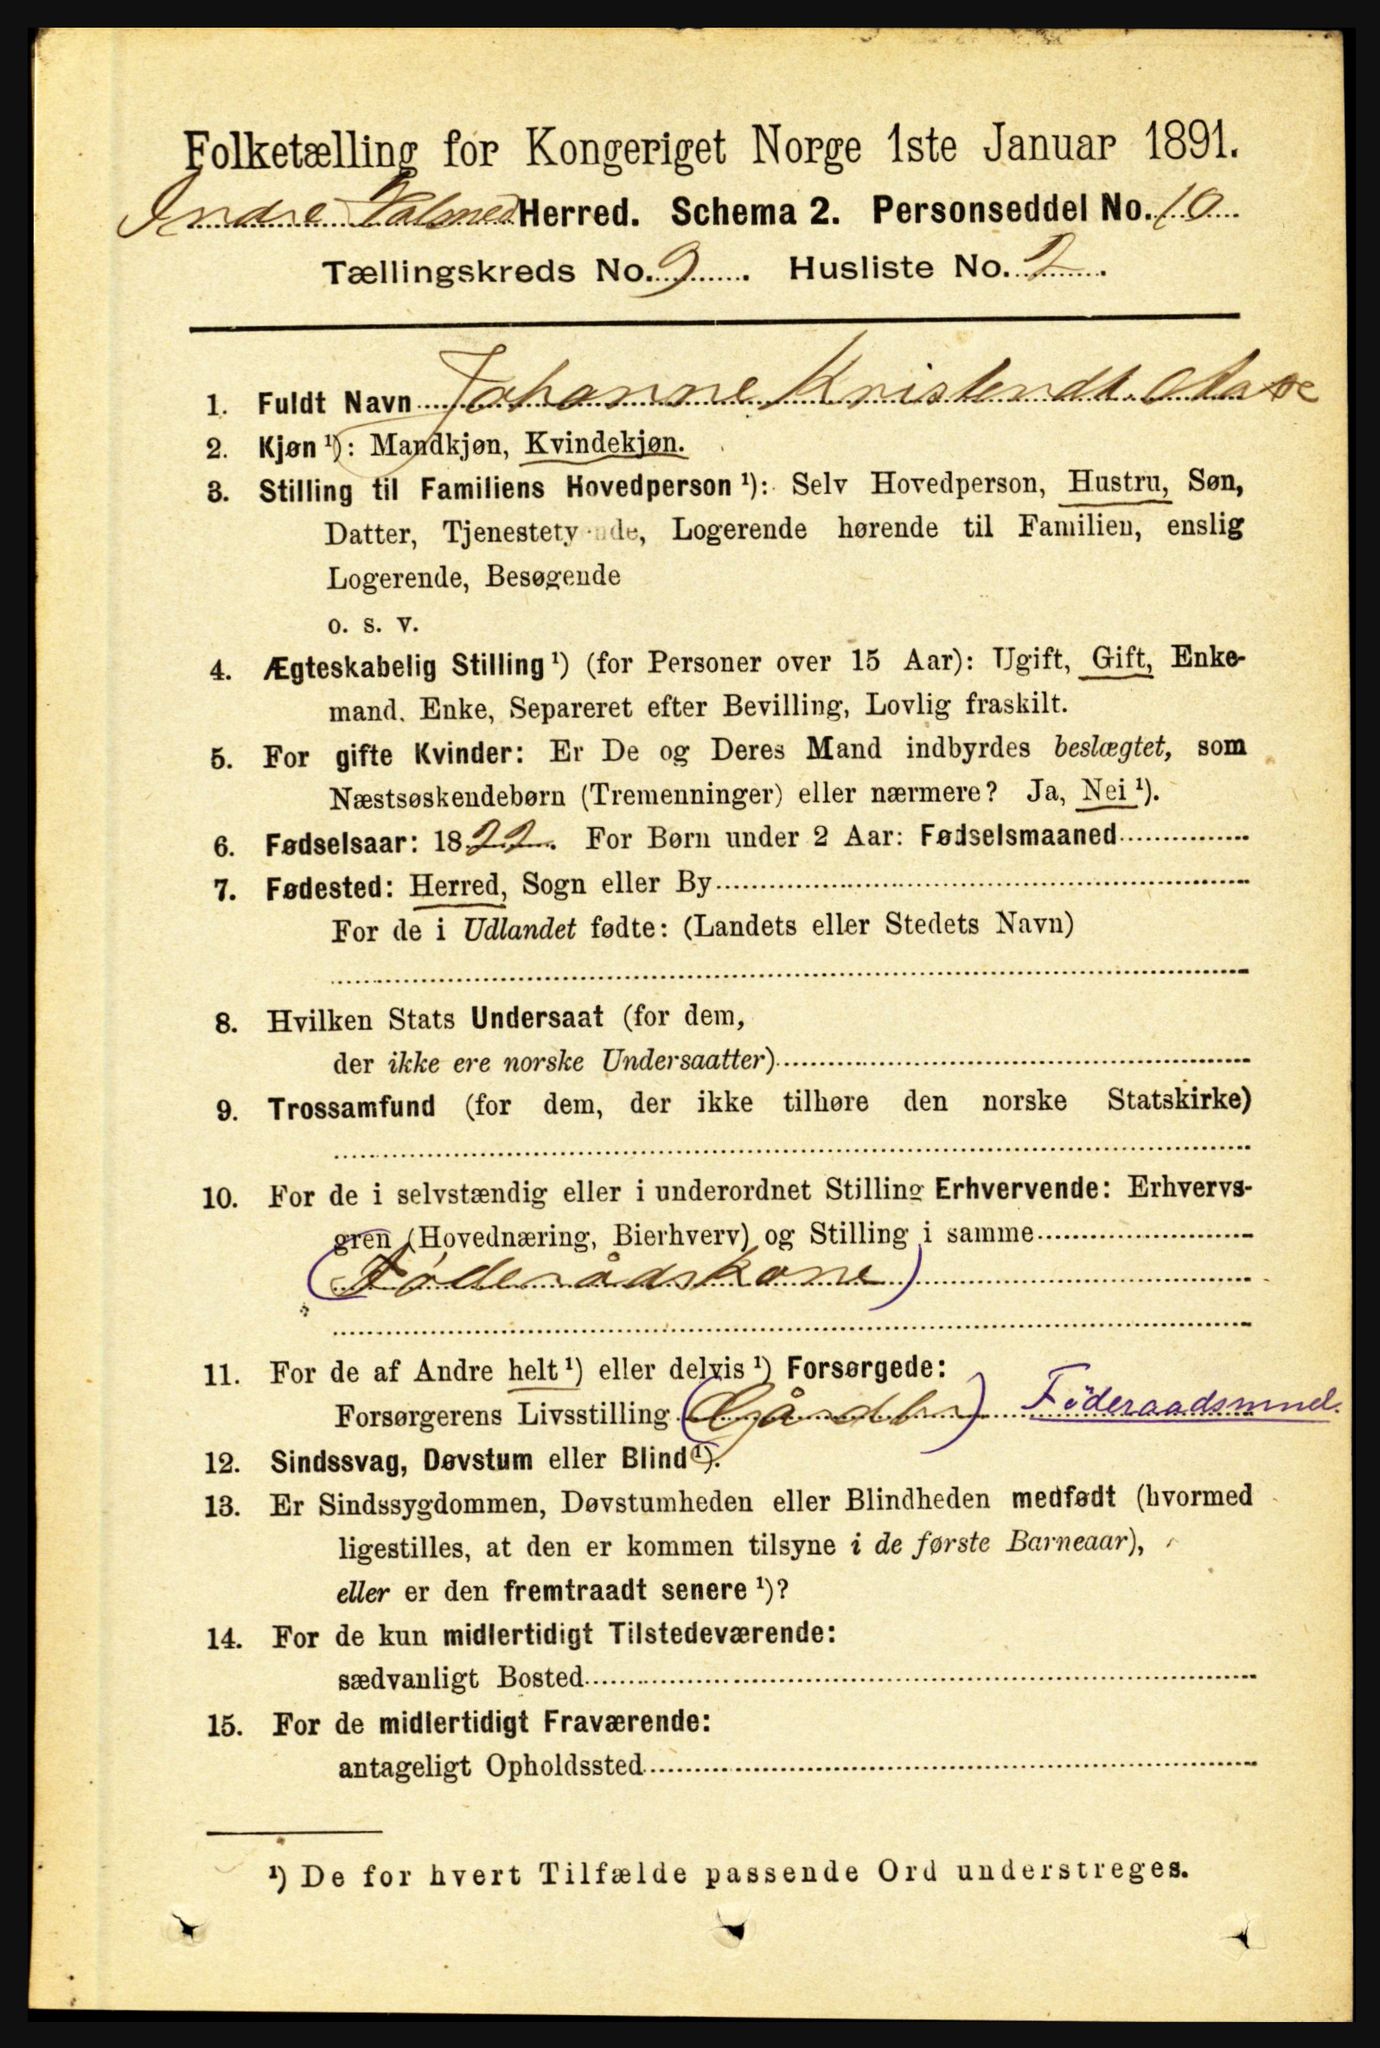 Folketælling for Kongeriget Norge 1ste Januar 1891.
Indre Holmedal Herred. Schema 2. Personseddel No. 10
Tællingskreds No. 9. Husliste No. 2.
1. Fuldt Navn Johanne Kristendt. Aase
2. Kjøn ¹): Mandkjøn, Kvindekjøn.
3. Stilling til Familiens Hovedperson ¹): Selv Hovedperson, Hustru, Søn,
Datter, Tjenestetyende, Logerende hørende til Familien, enslig
Logerende, Besøgende
o. s. v.
4. Ægteskabelig Stilling ¹) (for Personer over 15 Aar): Ugift, Gift, Enke-
mand. Enke, Separeret efter Bevilling, Lovlig fraskilt.
5. For gifte Kvinder: Er De og Deres Mand indbyrdes beslægtet, som
Næstsøskendebørn (Tremenninger) eller nærmere? Ja, Nei ¹).
6. Fødselsaar: 1822. For Børn under 2 Aar: Fødselsmaaned
7. Fødested: Herred, Sogn eller By
For de i Udlandet fødte: (Landets eller Stedets Navn)
8. Hvilken Stats Undersaat (for dem,
der ikke ere norske Undersaatter)
9. Trossamfund (for dem, der ikke tilhøre den norske Statskirke)
10. For de i selvstændig eller i underordnet Stilling Erhvervende: Erhvervs-
gren (Hovednæring, Bierhverv) og Stilling i samme
(Føderådskone)
11. For de af Andre helt ¹) eller delvis ¹) Forsørgede:
Forsørgerens Livsstilling (Gåndbr) Föderaadsmnd.
12. Sindssvag, Døvstum eller Blind ¹).
13. Er Sindssygdommen, Døvstumheden eller Blindheden medfødt (hvormed
ligestilles, at den er kommen tilsyne i de første Barneaar),
eller er den fremtraadt senere ¹)?
14. For de kun midlertidigt Tilstedeværende:
sædvanligt Bosted
15. For de midlertidigt Fraværende:
antageligt Opholdssted
¹) De for hvert Tilfælde passende Ord understreges.